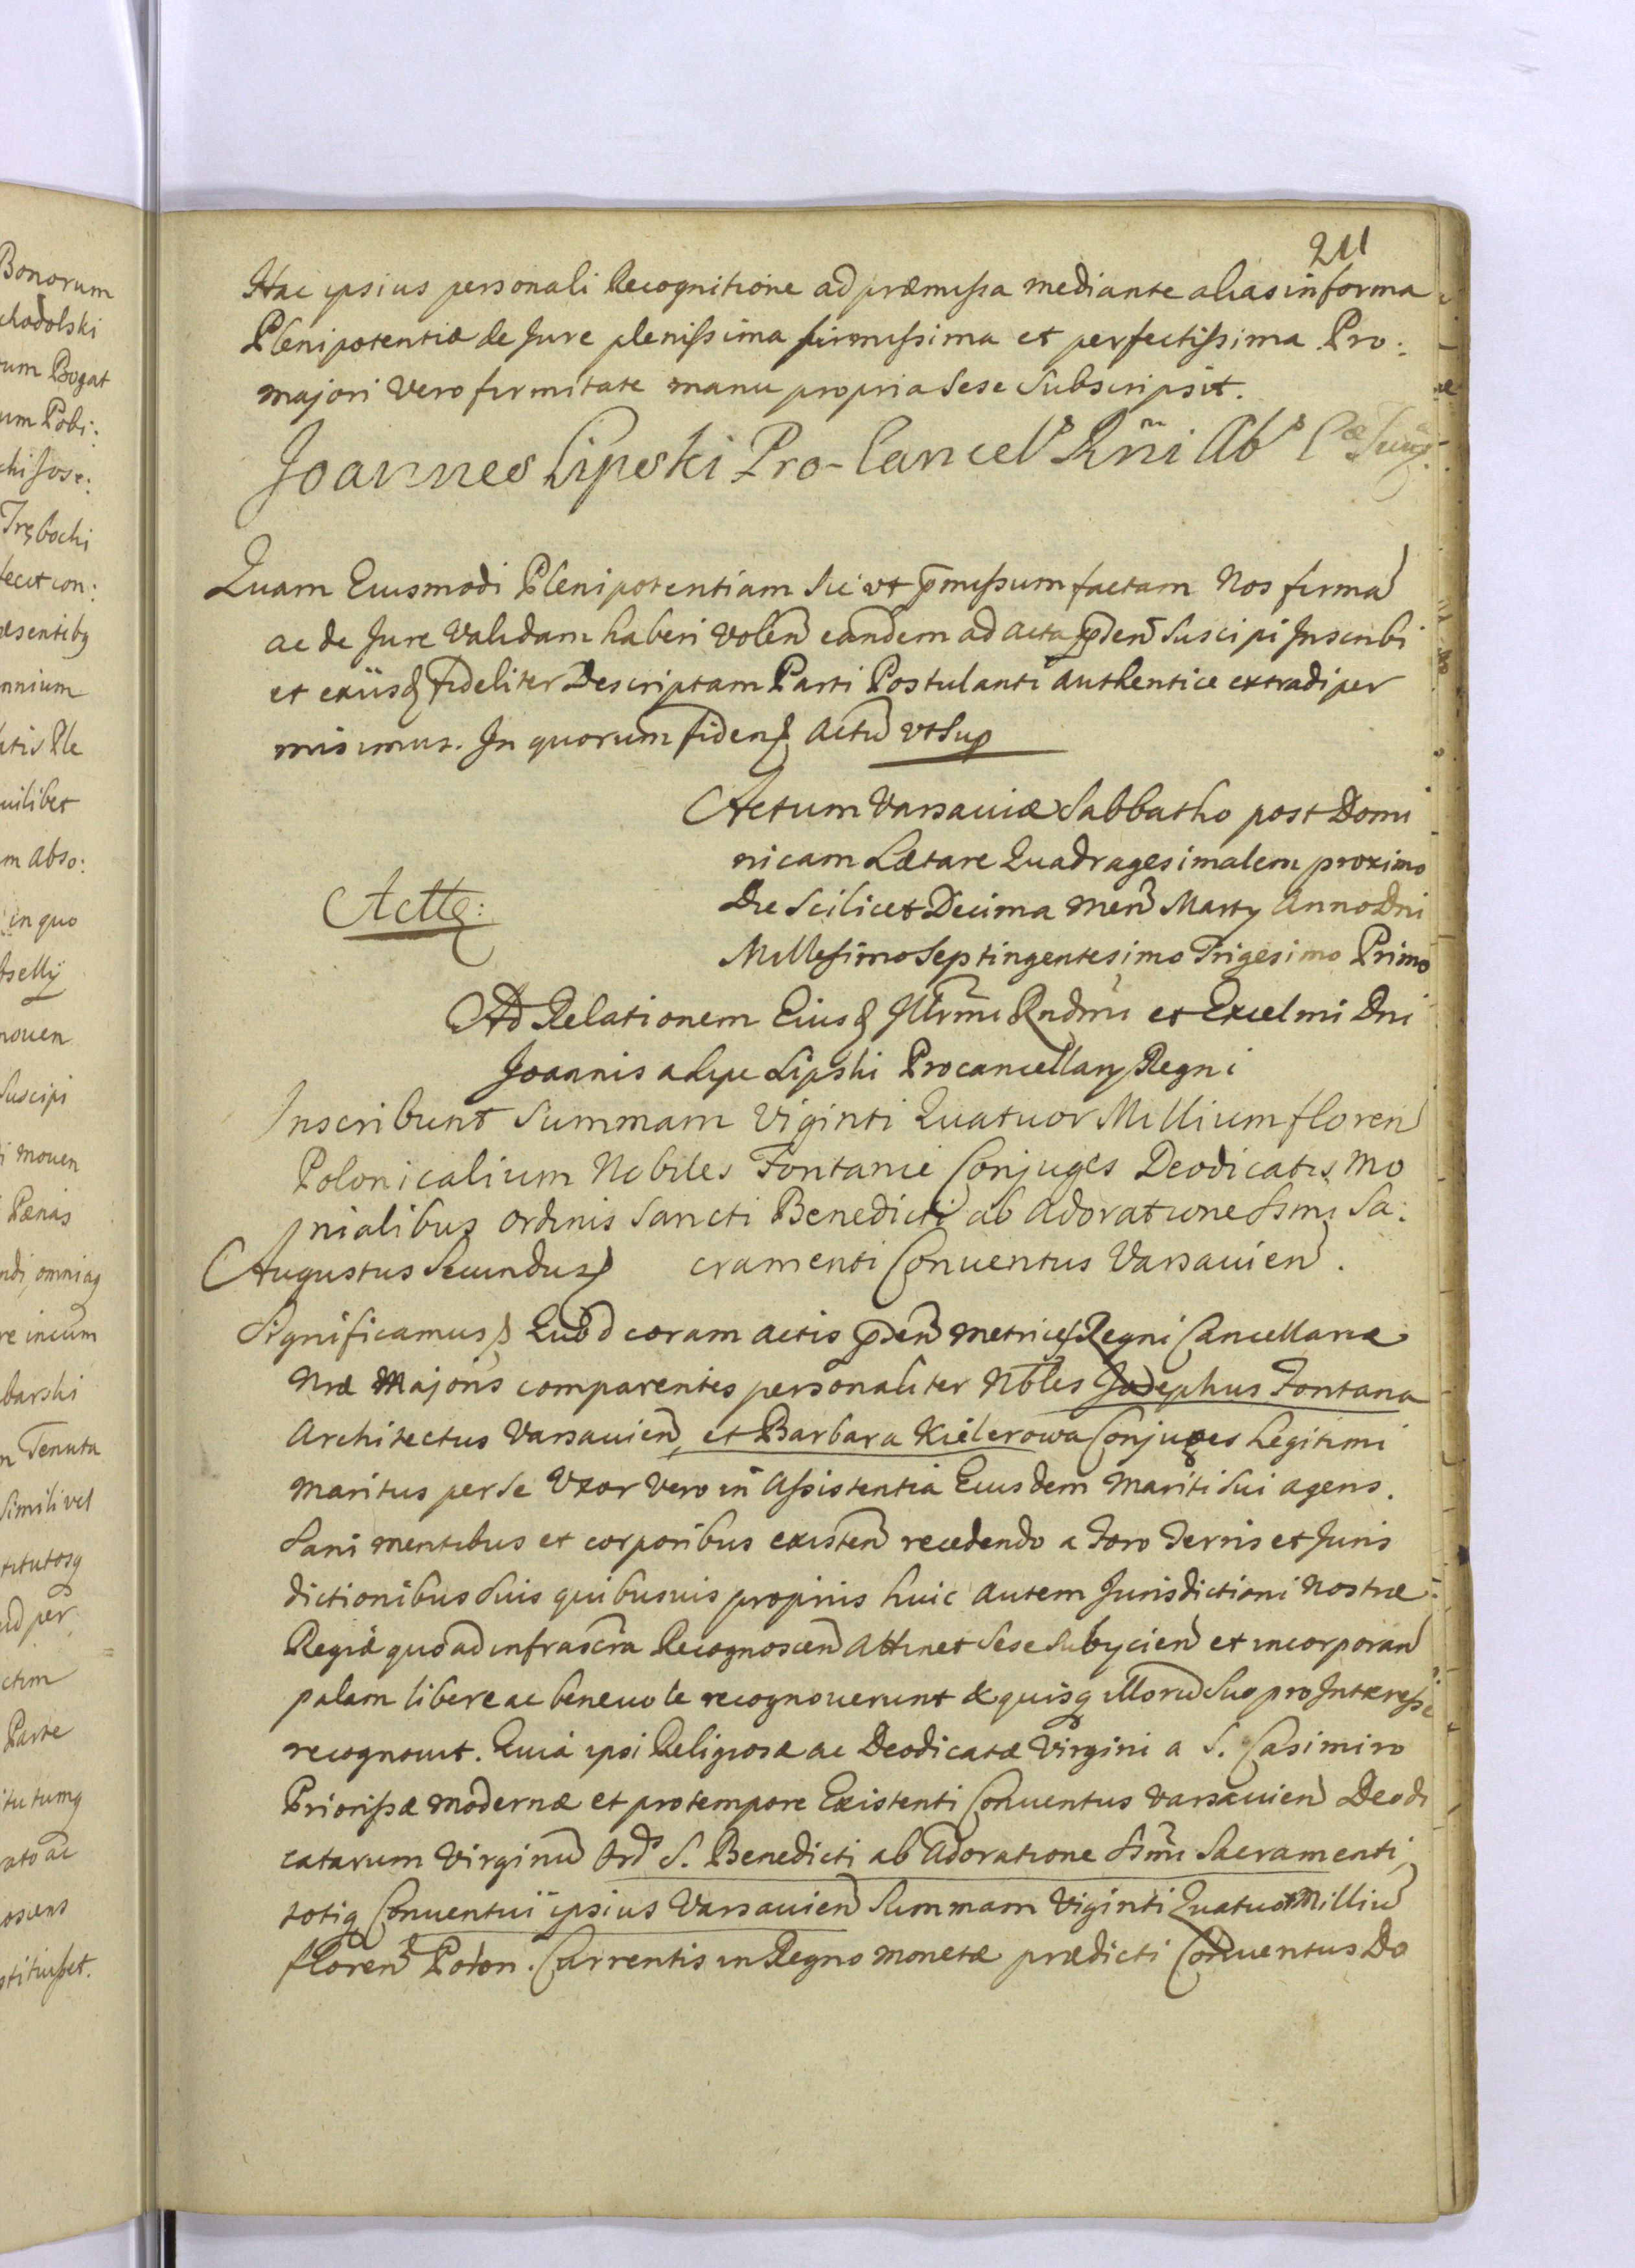 211
Hac ipsius personali Recognitione ad præmissa mediante alias in forma
Plenipotentiæ de Jure plenissima firmissima et perfectissima Pro:
majori vero firmitate manu propria sese subscripsit.
Joannes Lipski Pro-Cancels Rñi Abs
Quam Eiusmodi Plenipotentiam sic vt p̄missum factam Nos firmã
ac de Jure validam haberi volen̄ eandem ad acta p̄den̄ suscipi Inscribi
et exiisq fideliter Descriptam Parti Postulanti authentice extradi per
misimus. In quorum fidem actũ vt sup
Actum Varsaviæ Sabbatho post Domi
nicam Lætare Quadragesimalem proximo
Actu:
Die scilicet Decima men̄ Marty Anno Dni
Millesimo Septingentesimo Trigesimo Primo
Ad Relationem Eiusq Illr̄mi Rndm̄i et Excelmi Dni
Joannis a Lipe Lipski Procancellary Regni
Inscribunt Summam Viginti Quatuor Millium floren̄
Polonicalium Nobiles Fontanie Conjuges Deodicatis Mo
nialibus ordinis Sancti Benedicti ab Adoratione Ssmi Sa:
Augustus Secundus cramenti Conventus Varsavien̄.
Significamus Quod coram actis p̄den̄ metrices Regni Cancellariæ
Nræ Majoris comparentes personaliter Nbles Josephus Fontana
Architectus Varsavien̄, et Barbara Kielerowa Conjuges Legitimi
Maritus per se Vxor vero in Assistentia Eiusdem Mariti sui agens.
Sani mentibus et corporibus existen̄ recedendo a Foro Terris et Juris
dictionibus suis quibusuis proprijs huic autem Jurisdictioni Nostræ
Regiæ quo ad infrascr̄a Recognoscen̄ Attinet sese subycien̄ et incorporan̄
palam libere ac beneuole recognouerunt & quisq illorũ suo pro Interesse
recognouit. Quia ipsi Religiosæ ac Deodicatæ Virgini a S. Casimiro
Priorissæ modernæ et pro tempore Existenti Conuentus Varsauien̄ Deodi
catarum Virginũ Ords S. Benedicti ab Adoratione Ssm̄i Sacramenti,
totiq Conuentui ipsius Varsauien̄ Summam Viginti Quatuor Milliũ
floren̄ Polon. Currentis in Regno monetæ prædicti Conuentus Do